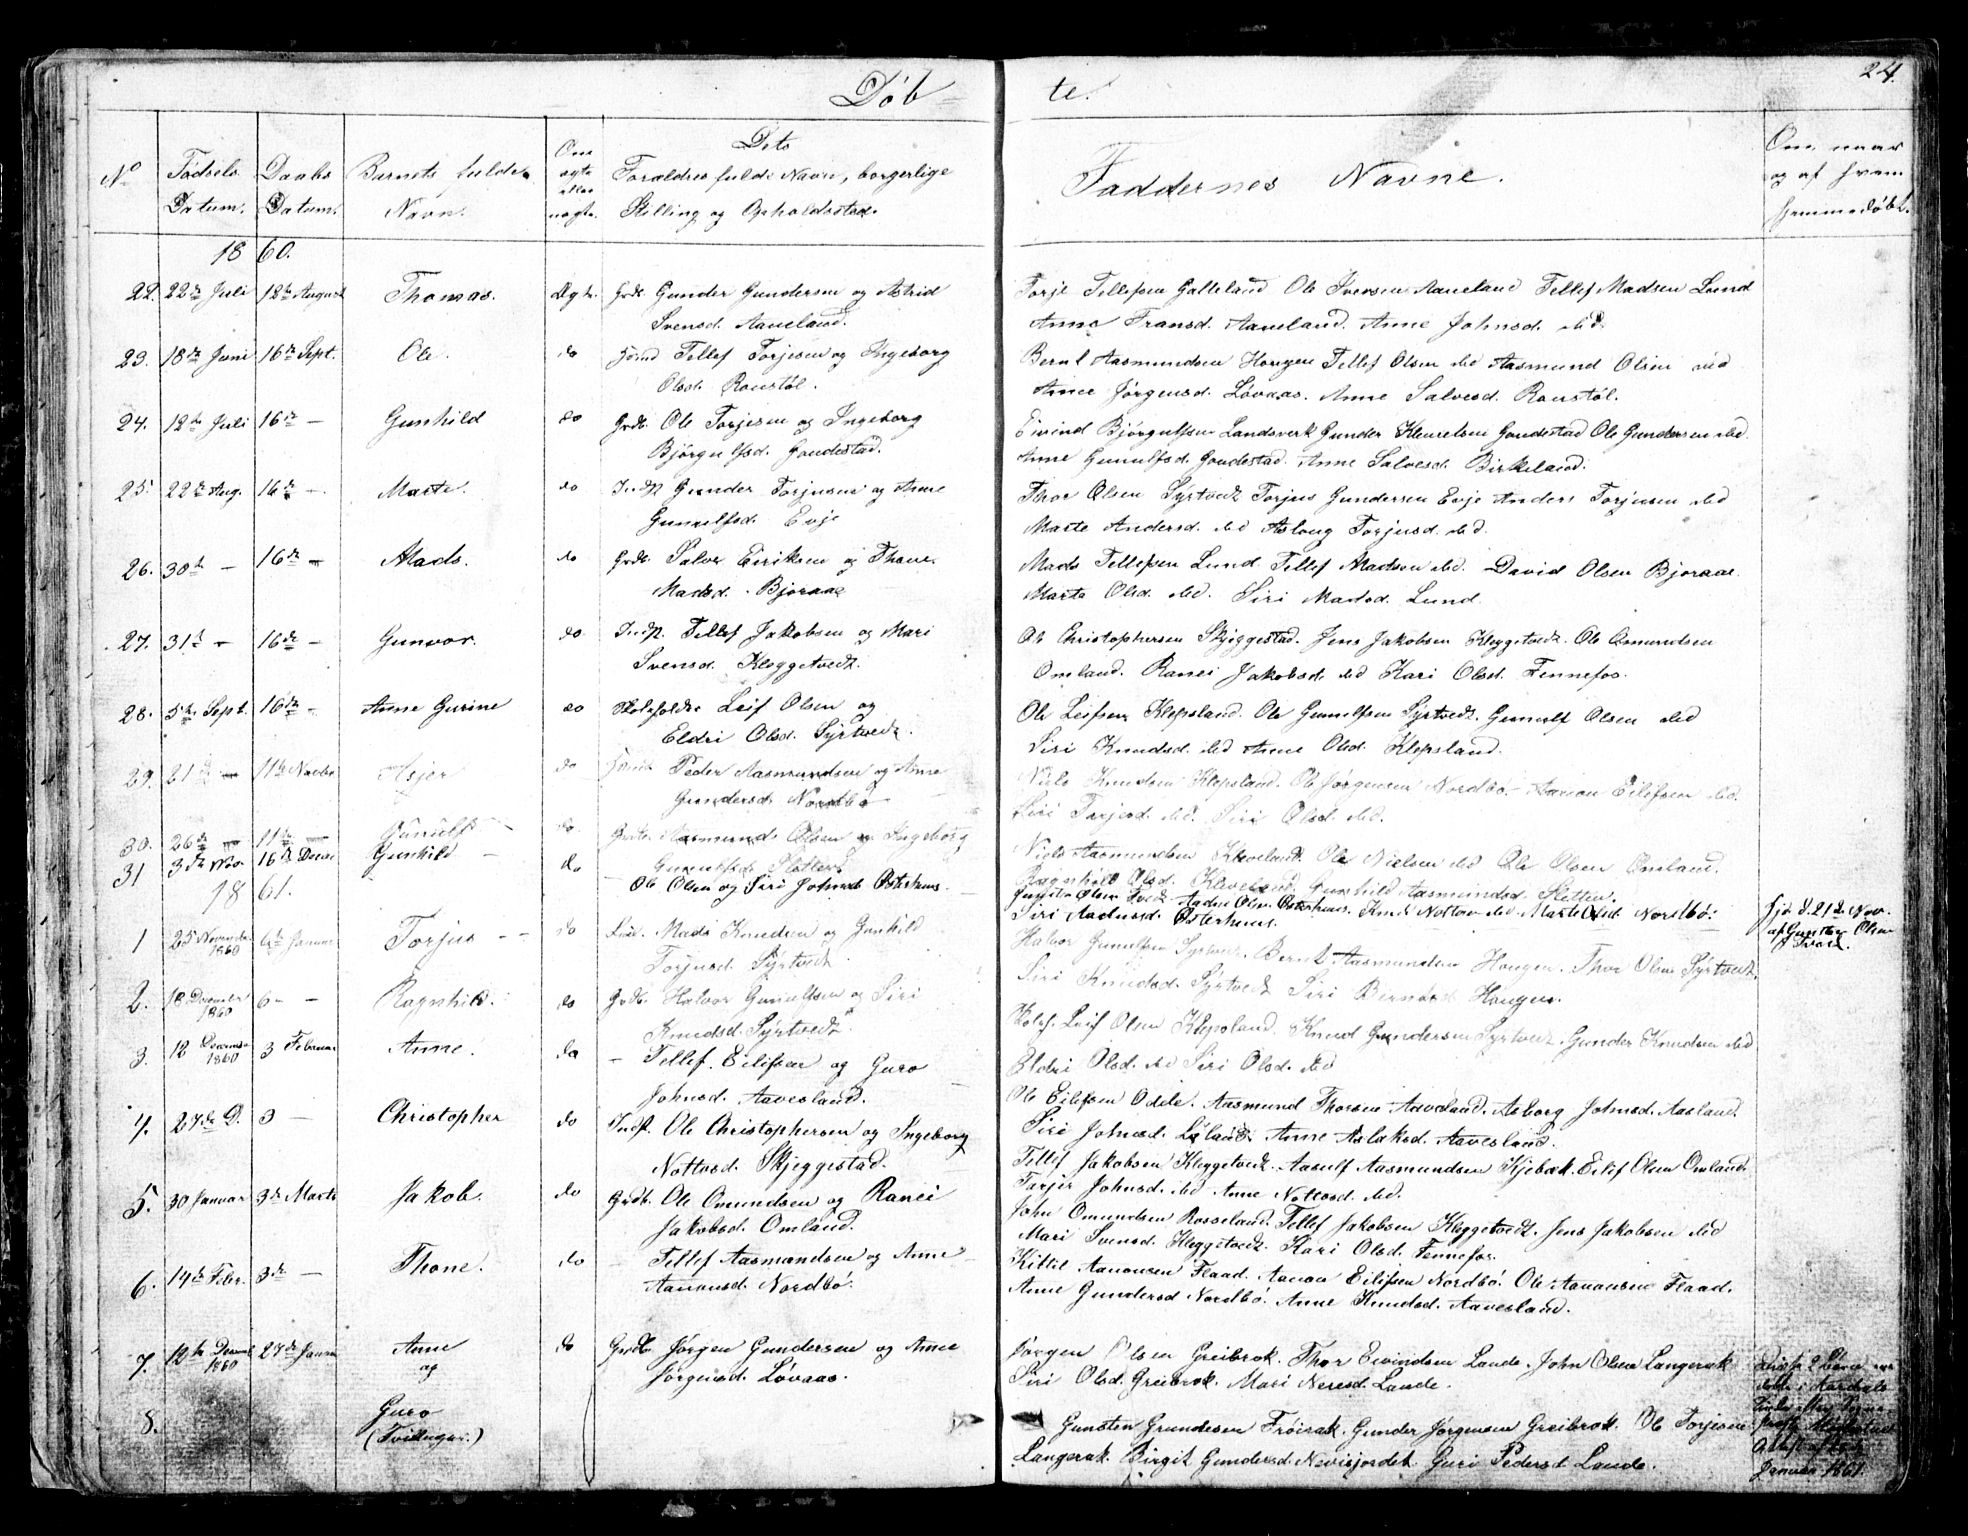 24.
Døb-te.
No
Fødsels Datum.
Daabs Datum.
Barnets fulde Navn.
Om ægte eller uægte.
Dets Forældres fulde Navn, borgerlige Stilling og Opholdssted.
Faddernes Navne.
Om, naar og af hvem hjemmedøbt.
1860.
22. 22de Juli 12te August Thomas. Ægte. Grdb. Gunder Gundersen og Astrid
Svensd. Aaneland.
Torje Tellefsen Galteland Ole Svensen Aaneland Tellef Madsen Lund
Anne Fransd. Aaneland. Anne Johnsd. ibid.
23. 18de Juni 16de Sept. Ole. do Tellef Torjesen og Ingeborg
Olsd. Rourstøl.
Bernt Aasmundsen Hougen Tellef Olsen ibid Aasmund Olsen ibid
Anne Jørgensd. Løvaas. Anne Salvesd. Rourstøl.
24. 12te Juli 16de — Gunhild do Grdb. Ole Torjesen og Ingeborg
Bjørgulfsd. Goudestad.
Eivind Bjørgulfsen Landsverk Gunder Knudsen Goudestad Ole Gundersen ibid.
Anne Gunulfsd. Goudestad. Anne Salvesd. Birkeland.
25. 22de Aug. 16de — Marte. do Indst Gunder Torjusen og Anne
Gunulfsd. Evje
Thor Olsen Syrtvedt Torjus Gundersen Evje Anders Torjusen ibid
Marte Andersd. ibid Aslaug Torjusd. ibid.
26. 30te — 16de — Mads. do Grdb. Salve Eiriksen og Thone
Madsd. Bjoraae
Mads Tellefsen Lund Tellef Madsen ibid. David Olsen Bjoraae.
Marte Olsd. ibid. Siri Madsd. Lund.
27. 31te — 16de — Gunvor. do Indst. Tellef Jakobsen og Mari
Svensd. Kleggetvedt.
Ole Christophersen Skjeggestad. Jens Jakobsen Kleggetvedt. Ole Omundsen
Omland. Ranei Jakobsd. ibid Kari Olsd. Fennefos.
28. 5te Sept. 16de — Anne Gurine do Leif Olsen og
Eldri Olsd. Syrtvedt.
Ole Leifsen Klepsland. Ole Gunulfsen Syrtvedt. Gunulf Olsen ibid
Siri Knudsd. ibid Anne Olsd. Klepsland.
29. 21 — 11te Novbr Asjer do Peder Aasmundsen og Anne
Gundersd. Nordbø
Niels Knudsen Klepsland. Ole Jørgensen Nordbø. Aanon Eilefsen ibid.
Siri Torjesd. ibid. Siri Olsd. ibid.
30. 26de — 11te — Gunulf do. Aasmund Olsen og Ingeborg
Gunulfsd. Sletten
Niels Aasmundsen Kleveland. Ole Nielsen ibid Ole Olsen Omland.
Ragnhild Olsd. Kleveland. Gunhild Aasmundsd. Sletten.
31 3de Nov. 16de Decbr Gunhild — do — Ole Olsen og Siri Johnsd. Østerhuus.
Gunsten Olsen Tveit Aadne Olsen Østerhuus. Knud Nottov. ibid. Marte Olsd. Nordbø.
Siri Aadnesd. Østerhuus.
Hjd. d. 21de Nov.
af Gunsten Olsen
Tveid.
1861.
1 25 November 1860 6te Januar Torjus do Mads Knudsen og Gunhild
Torjusd. Syrtvedt
Halvor Gunulfsen Syrtvedt. Bernt Aasmundsen Hougen. Thor Olsen Syrtvedt.
Siri Knudsd. Syrtvedt Siri Berntsd. Hougen.
2. 18 December 1860 6 — — Ragnhild. do Grdb. Halvor Gunulfsen og Siri
Knudsd. Syrtvedt
Leif Olsen Klepsland. Knud Gundersen Syrtvedt. Gunder Knudsen ibid
Eldri Olsd. ibid Siri Olsd. ibid
3. 12 December 1860 3 Februar Anne. do — Tellef Eilefsen og Guro
Johnsd. Aavesland.
Ole Eilefsen Odde. Aasmund Thorsen Aavesland. Asborg Johnsd. Aasland.
Siri Johnsd. Anne Aslaksd. Aavesland.
4. 27de D. 3 — Christopher do Indst. Ole Christophersen og Ingeborg
Nottosd. Skjeggestad.
Tellef Jakobsen Kleggetvedt. Aasulf Aasmundsen Kjebæk. Eilef Olsen Omland
Tarjer Johnsd. ibid Anne Nottosd. ibid.
5. 30 Januar 3de Marts Jakob. do Grdb. Ole Omundsen og Ranei
Jakobsd. Omland.
John Omundsen Rosseland. Tellef Jakobsen Kleggetvedt. Jens Jakobsen ibid
Mari Svensd. Kleggetvedt. Kari Olsd. Fennefos.
6. 14de Febr. 3de — Thone. do — Tellef Aasmundsen og Anne
Aanonsd. Nordbø.
Kittil Aanonsen Flaad. Aanon Eilefsen Nordbø. Ole Aanonsen Flaad.
Anne Gundersd Nordbø. Anne Knudsd. Aavesland.
7. 12te Decemb 1860 27de Januar Anne og do Grdb. Jørgen Gundersen og Anne
Jørgensd. Løvaas.
Jørgen Olsen Greibrok. Thor Eivindsen Lande. John Olsen Langerak
Siri Olsd. Greibrok. Mari Neresd. Lande.
8. Guro
(Tvillinger.)
Gunsten Frøirak. Gunder Jørgensen Greibrok. Ole Torjesen
Langerak. Birgit Gundersd. Guri Pedersd. Lande.
Disse 2 Børn
Januar 1861.